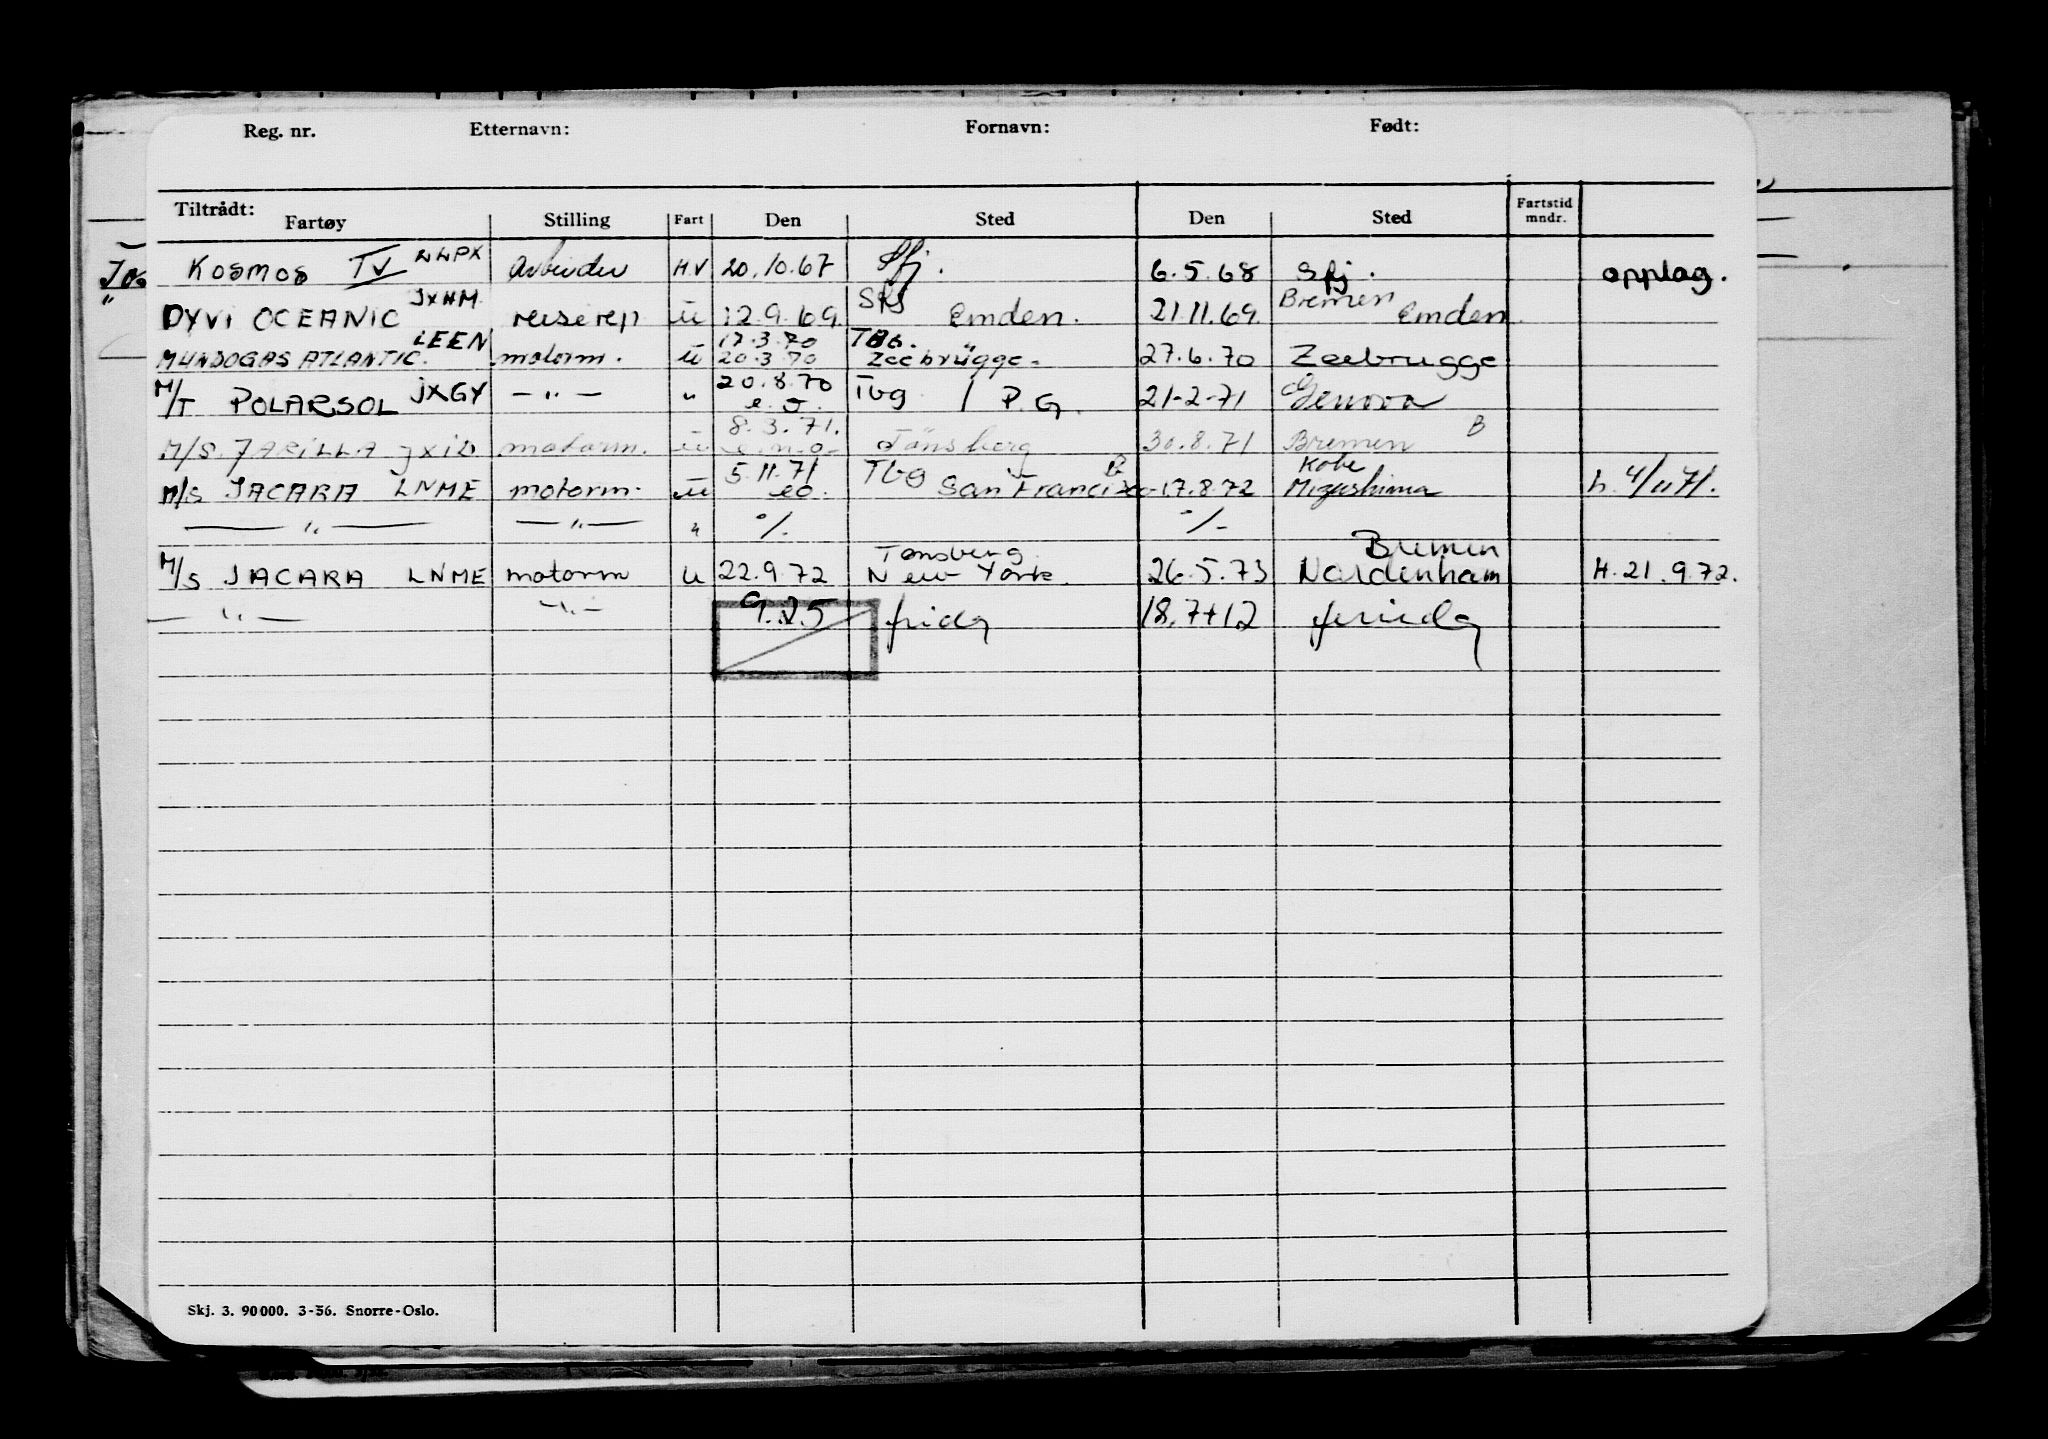 Reg. nr. Etternavn: Fornavn: Født:
Tiltrådt:
Fartøy Stilling Fart Den Sted Den Sted Fartstid mndr.
KOSMOS IV LLPX Arbeider H.V 20.10.67 Sfj. 6.5.68 Sfj. opplag.
DYVI OCEANIC JXHM reiserep u 12.9.69. Sfj Emden. 21.11.69. Bremen Emden.
17.3.70 TBG.
MUNDOGAS ATLANTIC. LEEN motorm. u 20.3.70 Zeebrügge. 27.6.70 Zeebrugge
M/T POLARSOL JXGY —"— " 20.8.70 e.o. Tbg / P.G. 21-2-71 Genova
8.3.71.
M/S. JARILLA motorm. u Tönsberg 30.8.71 Bremen B
5.11.71 Tbg B Kobe
M/S JACARA LNME motorm. u eo. San Francisco 17.8.72 Mizushima h. 4/11 71.
—"— —"— " %. %-
Tønsberg Bremen
M/S JACARA LNME motorm u 22.9.72 New York. 26.5.73 Nordenham H. 21.9.72.
—"— —"— 9.25 frida 18.7+12
Skj. 3. 90000. 3-56. Snorre-Oslo.